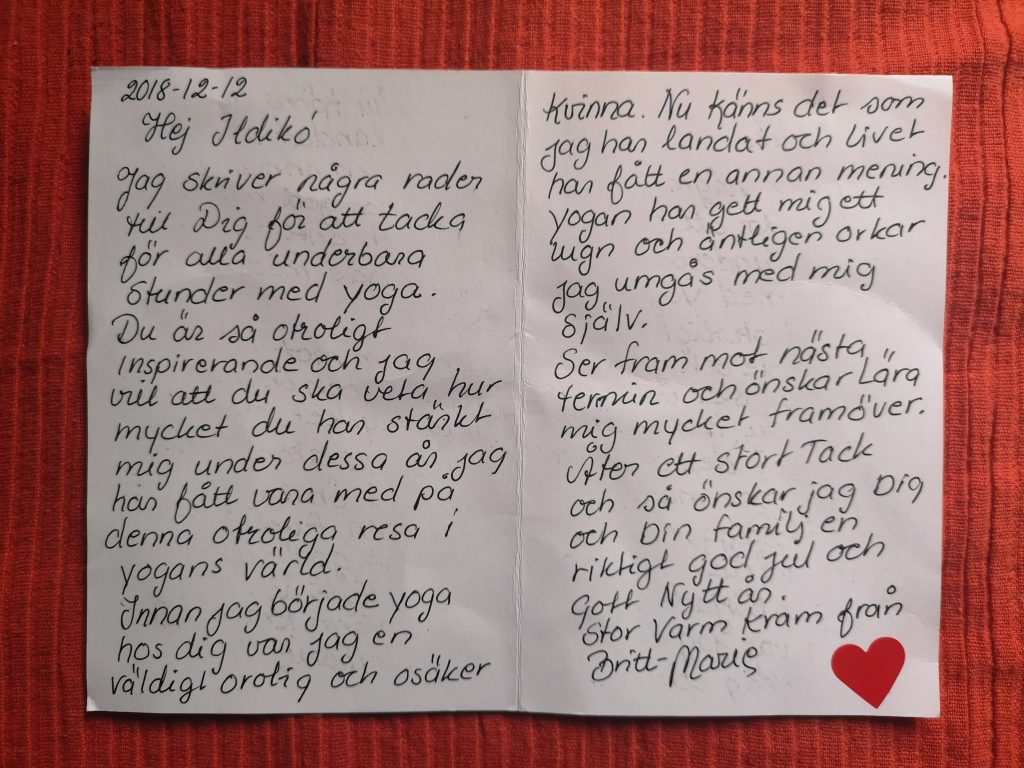 2018-12-12
Hej Ildikó
Jag skriver några rader
till Dig för att tacka
för alla underbara
stunder med yoga.
Du är så otroligt
inspirerande och jag
vill att du ska veta hur
mycket du har stärkt
mig under dessa år jag
har fått vara med på
denna otroliga resa i
yogans värld.
Innan jag började yoga
hos dig var jag en
väldigt orolig och osäker
kvinna. Nu känns det som
jag har landat och livet
har fått en annan mening.
yogan har gett mig ett
lugn och äntligen orkar
jag umgås med mig
själv.
Ser fram mot nästa
termin och önskar lära
mig mycket framöver.
Åter ett stort Tack
och så önskar jag Dig
och Din familj en
riktigt god jul och
Gott Nytt år.
Stor Varm kram från
Britt-Marie